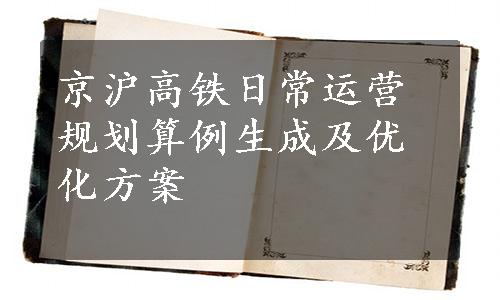 京沪高铁日常运营
规划算例生成及优
化方案